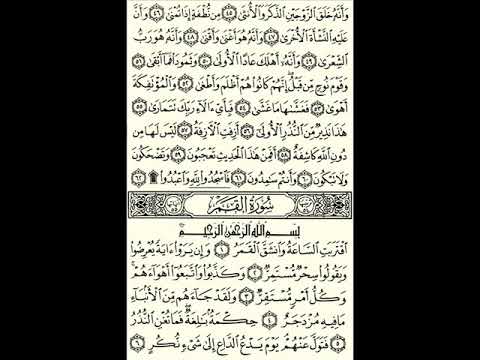 وَأَنَّهُۥ خَلَقَ ٱلزَّوْجَيْنِ ٱلذَّكَرَ وَٱلْأُنثَىٰ ٤٥ مِن نُّطْفَةٍ إِذَا تُمْنَىٰ ٤٦ وَأَنَّ
عَلَيْهِ ٱلنَّشْأَةَ ٱلْأُخْرَىٰ ٤٧ وَأَنَّهُۥ هُوَ أَغْنَىٰ وَأَقْنَىٰ ٤٨ وَأَنَّهُۥ هُوَ رَبُّ
ٱلشِّعْرَىٰ ٤٩ وَأَنَّهُۥٓ أَهْلَكَ عَادًا ٱلْأُولَىٰ ٥٠ وَثَمُودَا۟ فَمَآ أَبْقَىٰ ٥١
وَقَوْمَ نُوحٍ مِّن قَبْلُ ۖ إِنَّهُمْ كَانُوا۟ هُمْ أَظْلَمَ وَأَطْغَىٰ ٥٢ وَٱلْمُؤْتَفِكَةَ
أَهْوَىٰ ٥٣ فَغَشَّىٰهَا مَا غَشَّىٰ ٥٤ فَبِأَىِّ ءَالَآءِ رَبِّكَ تَتَمَارَىٰ ٥٥
هَٰذَا نَذِيرٌ مِّنَ ٱلنُّذُرِ ٱلْأُولَىٰٓ ٥٦ أَزِفَتِ ٱلْءَازِفَةُ ٥٧ لَيْسَ لَهَا مِن
دُونِ ٱللَّهِ كَاشِفَةٌ ٥٨ أَفَمِنْ هَٰذَا ٱلْحَدِيثِ تَعْجَبُونَ ٥٩ وَتَضْحَكُونَ
وَلَا تَبْكُونَ ٦٠ وَأَنتُمْ سَٰمِدُونَ ٦١ فَٱسْجُدُوا۟ لِلَّهِ وَٱعْبُدُوا۟ ۩ ٦٢
سُورَةُ ٱلْقَمَرِ
بِسْمِ ٱللَّهِ ٱلرَّحْمَٰنِ ٱلرَّحِيمِ
ٱقْتَرَبَتِ ٱلسَّاعَةُ وَٱنشَقَّ ٱلْقَمَرُ ١ وَإِن يَرَوْا۟ ءَايَةً يُعْرِضُوا۟
وَيَقُولُوا۟ سِحْرٌ مُّسْتَمِرٌّ ٢ وَكَذَّبُوا۟ وَٱتَّبَعُوٓا۟ أَهْوَآءَهُمْ ۚ
وَكُلُّ أَمْرٍ مُّسْتَقِرٌّ ٣ وَلَقَدْ جَآءَهُم مِّنَ ٱلْأَنۢبَآءِ
مَا فِيهِ مُزْدَجَرٌ ٤ حِكْمَةٌۢ بَٰلِغَةٌ ۖ فَمَا تُغْنِ ٱلنُّذُرُ
٥ فَتَوَلَّ عَنْهُمْ ۘ يَوْمَ يَدْعُ ٱلدَّاعِ إِلَىٰ شَىْءٍ نُّكُرٍ ٦